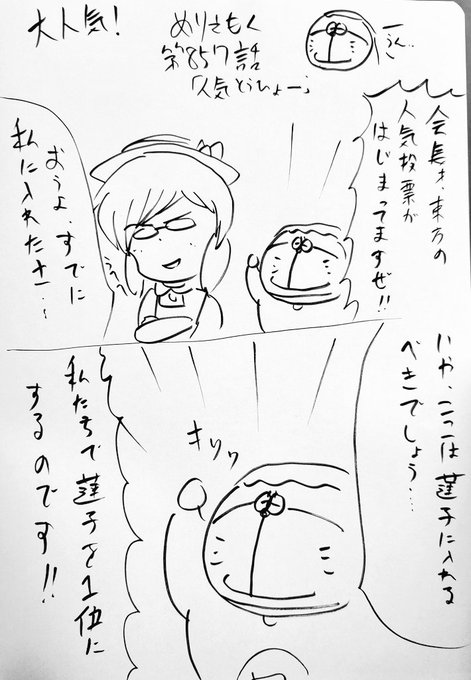 大人気!
めりさもく
第857話
「人気とうひょー」
うん…
会長、東方の
人気投票が
はじまってますぜ!!
おうよ、すでに
私に入れたさ…
いや、ここは蓮子に入れる
べきでしょう…
キリッ
私たちで蓮子を1位に
するのです!!